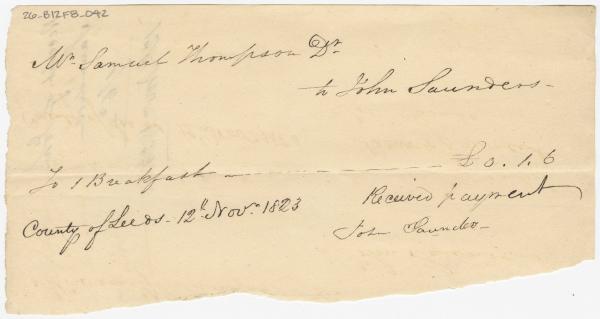 26-B12F8-042
Mr. Samuel Thompson Dr.
to John Saunders-
To 1 Breakfast - - - - - £0.1.6
County of Leeds - 12th Novr. 1823
Received payment
John Saunders-